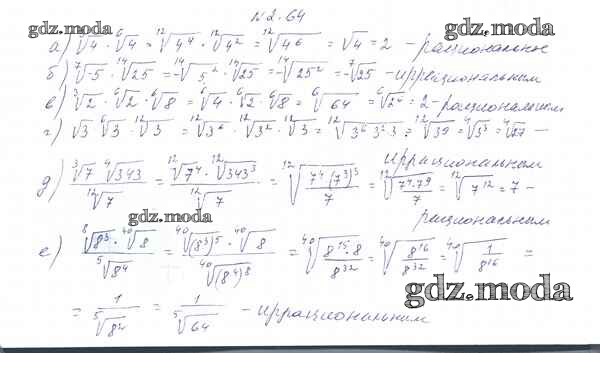 №2.64
gdz.moda
gdz.moda
а) ∛4 · ⁶√4 = ¹²√4⁴ · ¹²√4² = ¹²√4⁶ = √4 = 2 - рациональное
б) ⁷√-5 · ¹⁴√25 = -¹⁴√5² · ¹⁴√25 = -¹⁴√25² = -⁷√25 - иррациональным
в) ∛2 · ⁶√2 · ⁶√8 = ⁶√4 · ⁶√2 · ⁶√8 = ⁶√64 = ⁶√2⁶ = 2 - рациональным
г) √3 ⁶√3 · ¹²√3 = ¹²√3⁶ · ¹²√3² · ¹²√3 = ¹²√3⁶3²3 = ¹²√3⁹ = ⁴√3³ = ⁴√27 -
иррациональным
д) ∛7 ⁴√343 / ¹²√7 = ¹²√7⁴ · ¹²√343³ / ¹²√7 = ¹²√7⁴(7³)³/7 = ¹²√7⁴·7⁹/7 = ¹²√7¹² = 7 -
рациональным
gdz.moda
е) ⁸√8³ · ⁴⁰√8 / ⁵√8⁴ = ⁴⁰√(8³)⁵ · ⁴⁰√8 / ⁴⁰√(8⁴)⁸ = ⁴⁰√8¹⁵·8/8³² = ⁴⁰√8¹⁶/8³² = ⁴⁰√1/8¹⁶ =
gdz.moda
= 1/⁵√8² = 1/⁵√64 - иррациональным